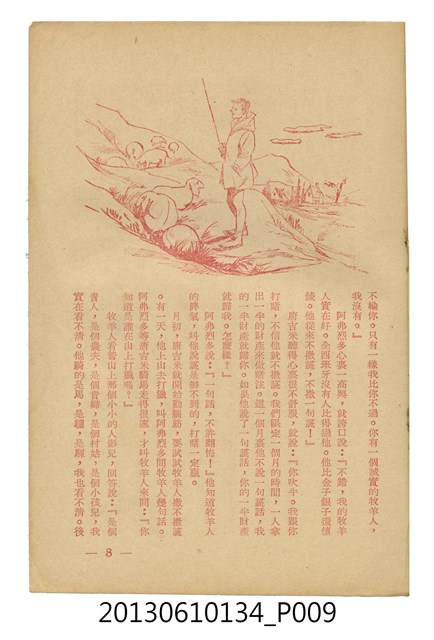 不輸你。只有一樣我比你不過。你有一個誠實的牧羊人，
我沒有。』
阿弗烈多心裏一高興，就誇口說：『不錯，我的牧羊
人實在好。全西班牙沒有人比得過他。他比金子銀子還值
錢。他從來不撒謊，不撒一句謊。』
唐吉米聽得心裏很不舒服，就說：『你吹牛。我跟你
打賭，不信他就不撒謊。我們限定一個月的時間，一人拿
出一半的財產來做賭注。這一個月裏他不說一句謊話，我
的一半財產就歸你。如果他說了一句謊話，你的一半財產
就歸我。怎麼樣？』
阿弗烈多說：『一句話，不許翻悔！』他知道牧羊人
的脾氣，叫他說謊是辦不到的，打賭一定贏。
月初，唐吉米就開始動腦筋，要試試牧羊人撒不撒謊
。有一天，他上山去打獵，叫阿弗烈多問牧羊人幾句話。
阿弗烈多等唐吉米騎馬走得很遠，才叫牧羊人來問：『你
知道是誰在山上打獵嗎？』
牧羊人看着山上那個小小的人影兒，回答說：『是個
貴人，是個農夫，是個貴婦，是個村姑，是個小孩兒，我
實在看不清。他騎的是馬，是騾，是驢，我也看不清。後
— 8 —
20130610134_P009